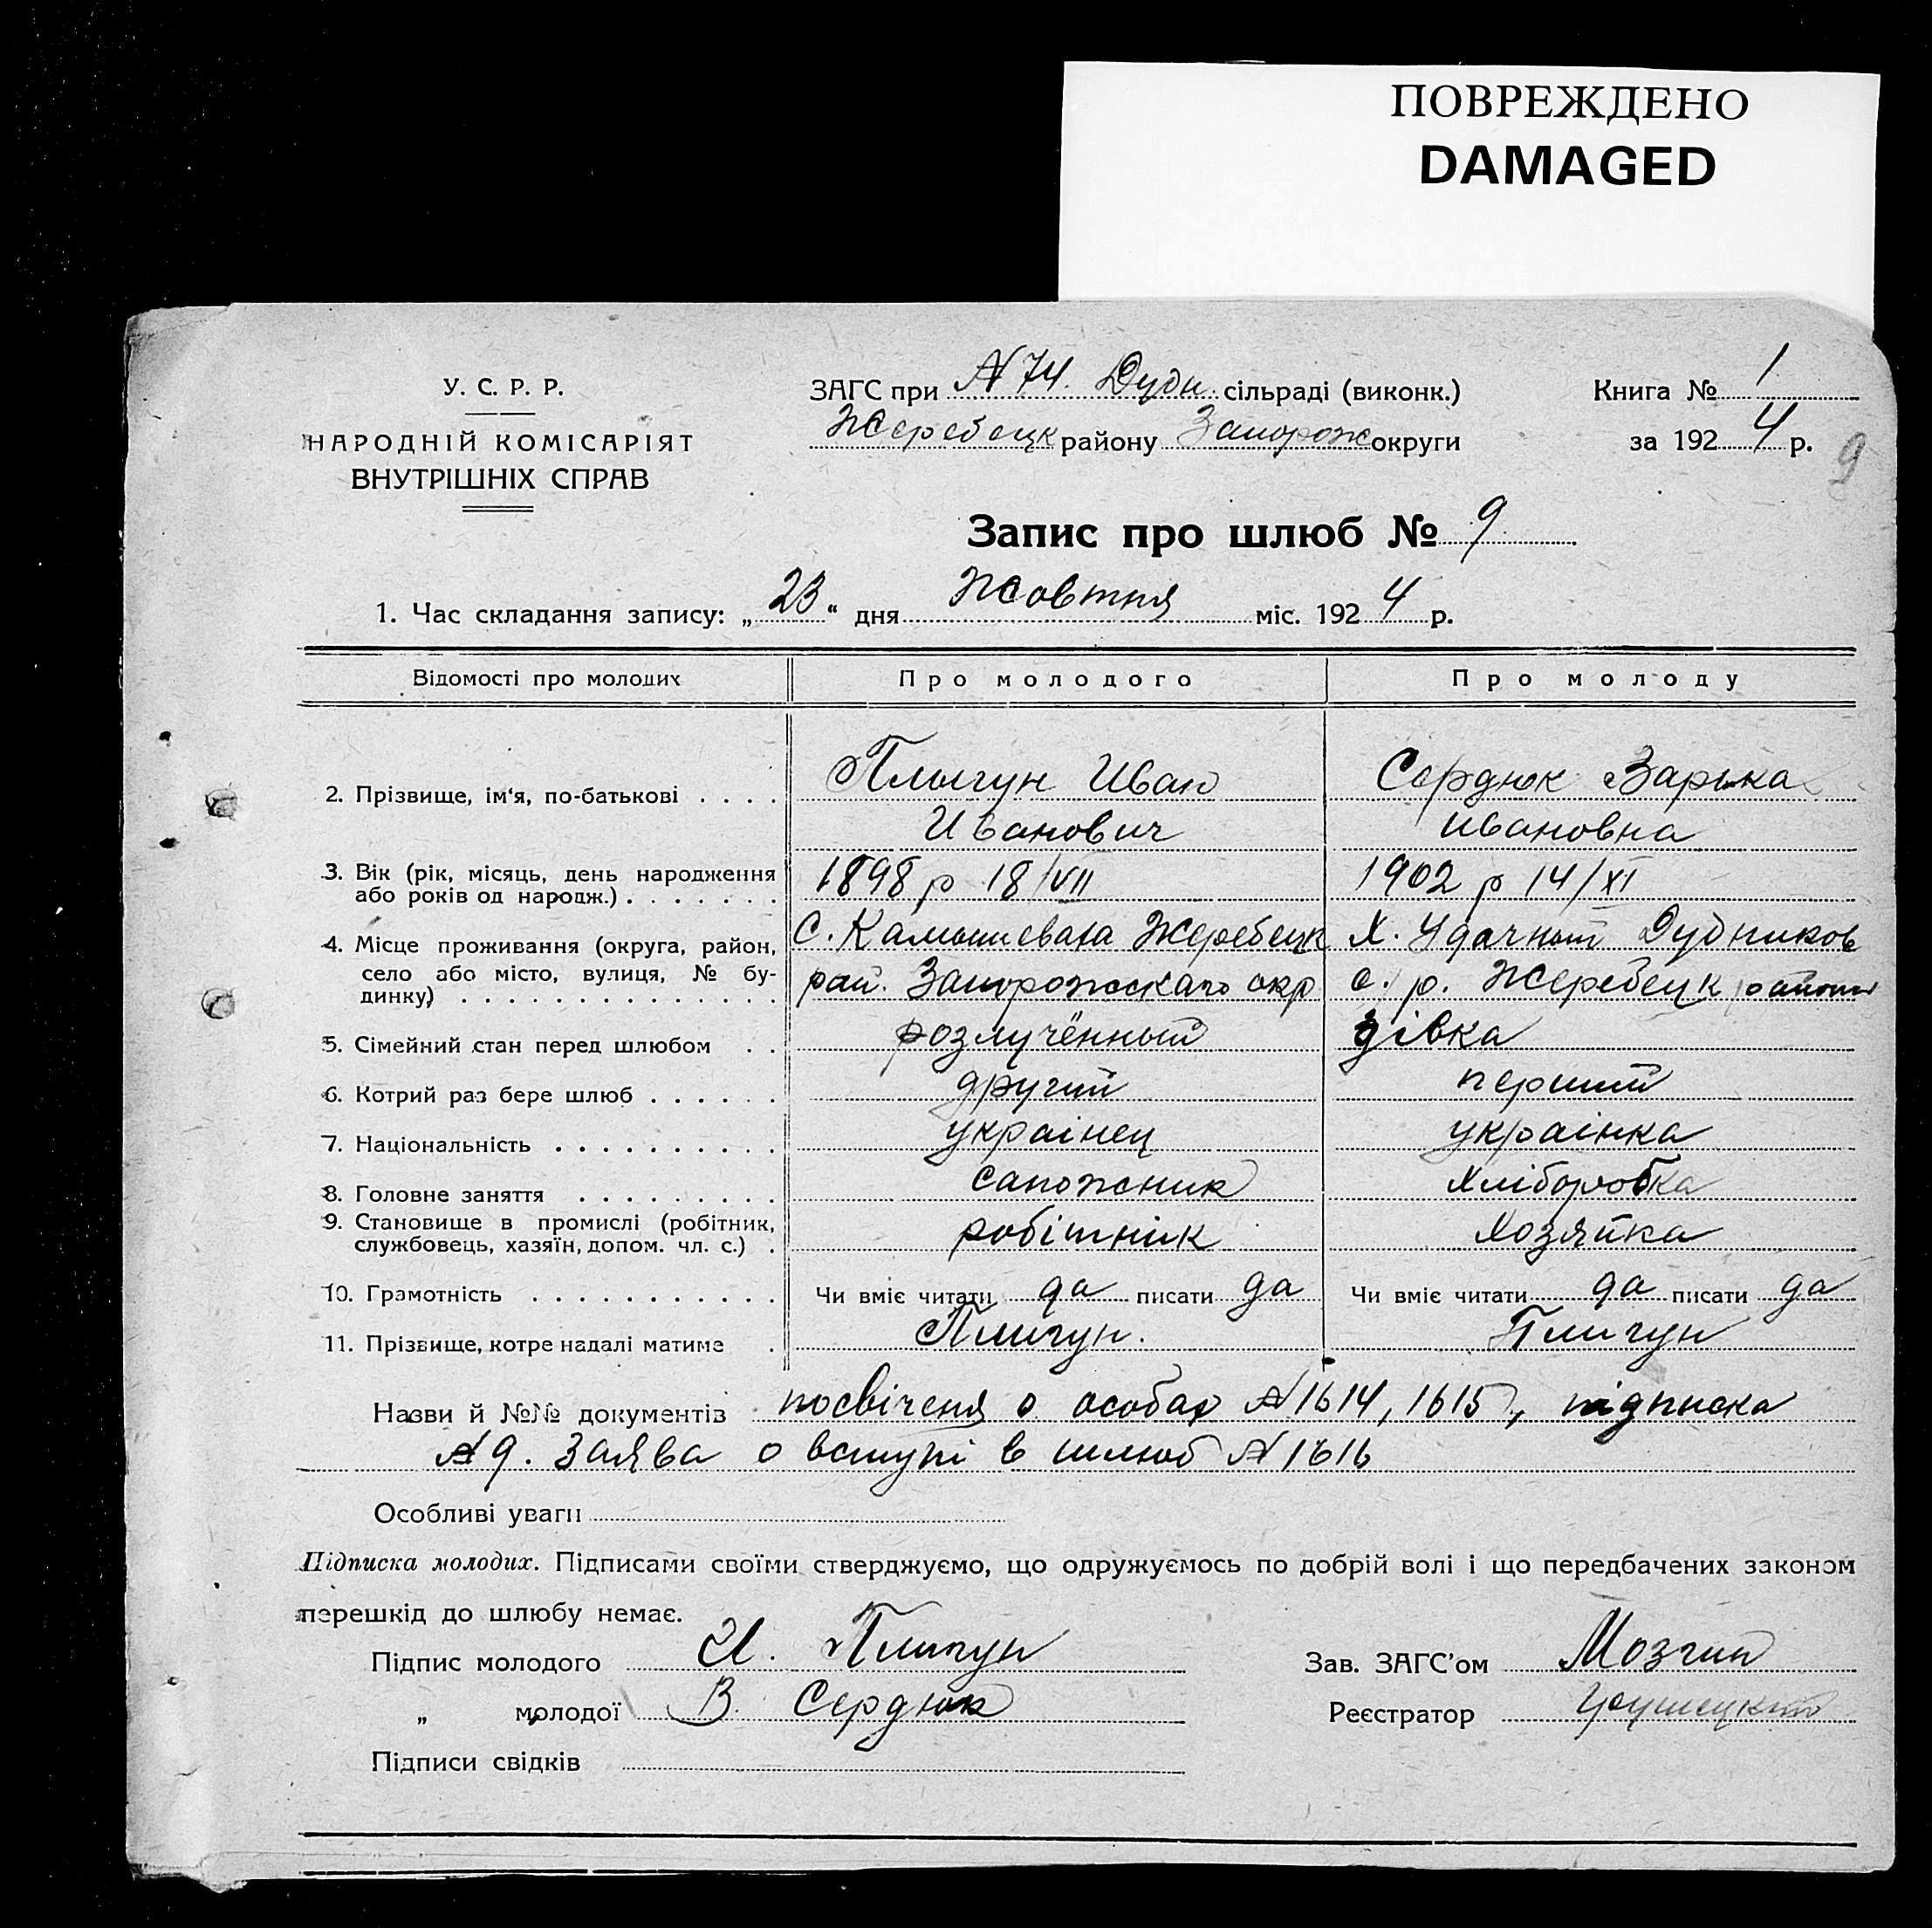 ПОВРЕЖДЕНО
DAMAGED
У. С. Р. Р.
НАРОДНІЙ КОМІСАРІЯТ
ВНУТРІШНІХ СПРАВ
ЗАГС при N 74. Дудн. сільраді (виконк.)
Жеребецк району Запорож округи
Книга № 1
за 1924 р.
9
Запис про шлюб № 9
1. Час складання запису: „23“ дня Жовтня міс. 1924 р.
Відомості про молодих Про молодого Про молоду
2. Прізвище, ім‘я, по-батькові . . . . Плигун Иван Сердюк
Иванович Ивановна
3. Вік (рік, місяць, день народження
або років од народж.) . . . . . . . 1898 р 18/VII 1902 р 14/XI
4. Місце проживання (округа, район,
село або місто, вулиця, № бу-
динку) . . . . . . . . . . . . . .
с. Камышеваха Жеребецк
рай. Запорожскаго окр
Х. Удачный Дудников
с. р. Жеребецк района
5. Сімейний стан перед шлюбом . . розлучённый дівка
6. Котрий раз бере шлюб . . . . . . другий перший
7. Національність . . . . . . . . . . українец українка
8. Головне заняття . . . . . . . . . сапожник хліборобка
9. Становище в промислі (робітник,
службовець, хазяїн, допом. чл. с.) . робітник хозяйка
10. Грамотність . . . . . . . . . . . Чи вміє читати да писати да Чи вміє читати да писати да
11. Прізвище, котре надалі матиме . Плигун. Плигун
Назви й №№ документів посвіченя о особах N 1614, 1615, підписка
N 9. Заява о вступі в шлюб N 1616
Особливі уваги
Підписка молодих. Підписами своїми стверджуємо, що одружуємось по добрій волі і що передбачених законом
перешкід до шлюбу немає.
Підпис молодого И. Плигун
„ молодої В. Сердюк
Підписи свідків
Зав. ЗАГС’ом
Реєстратор